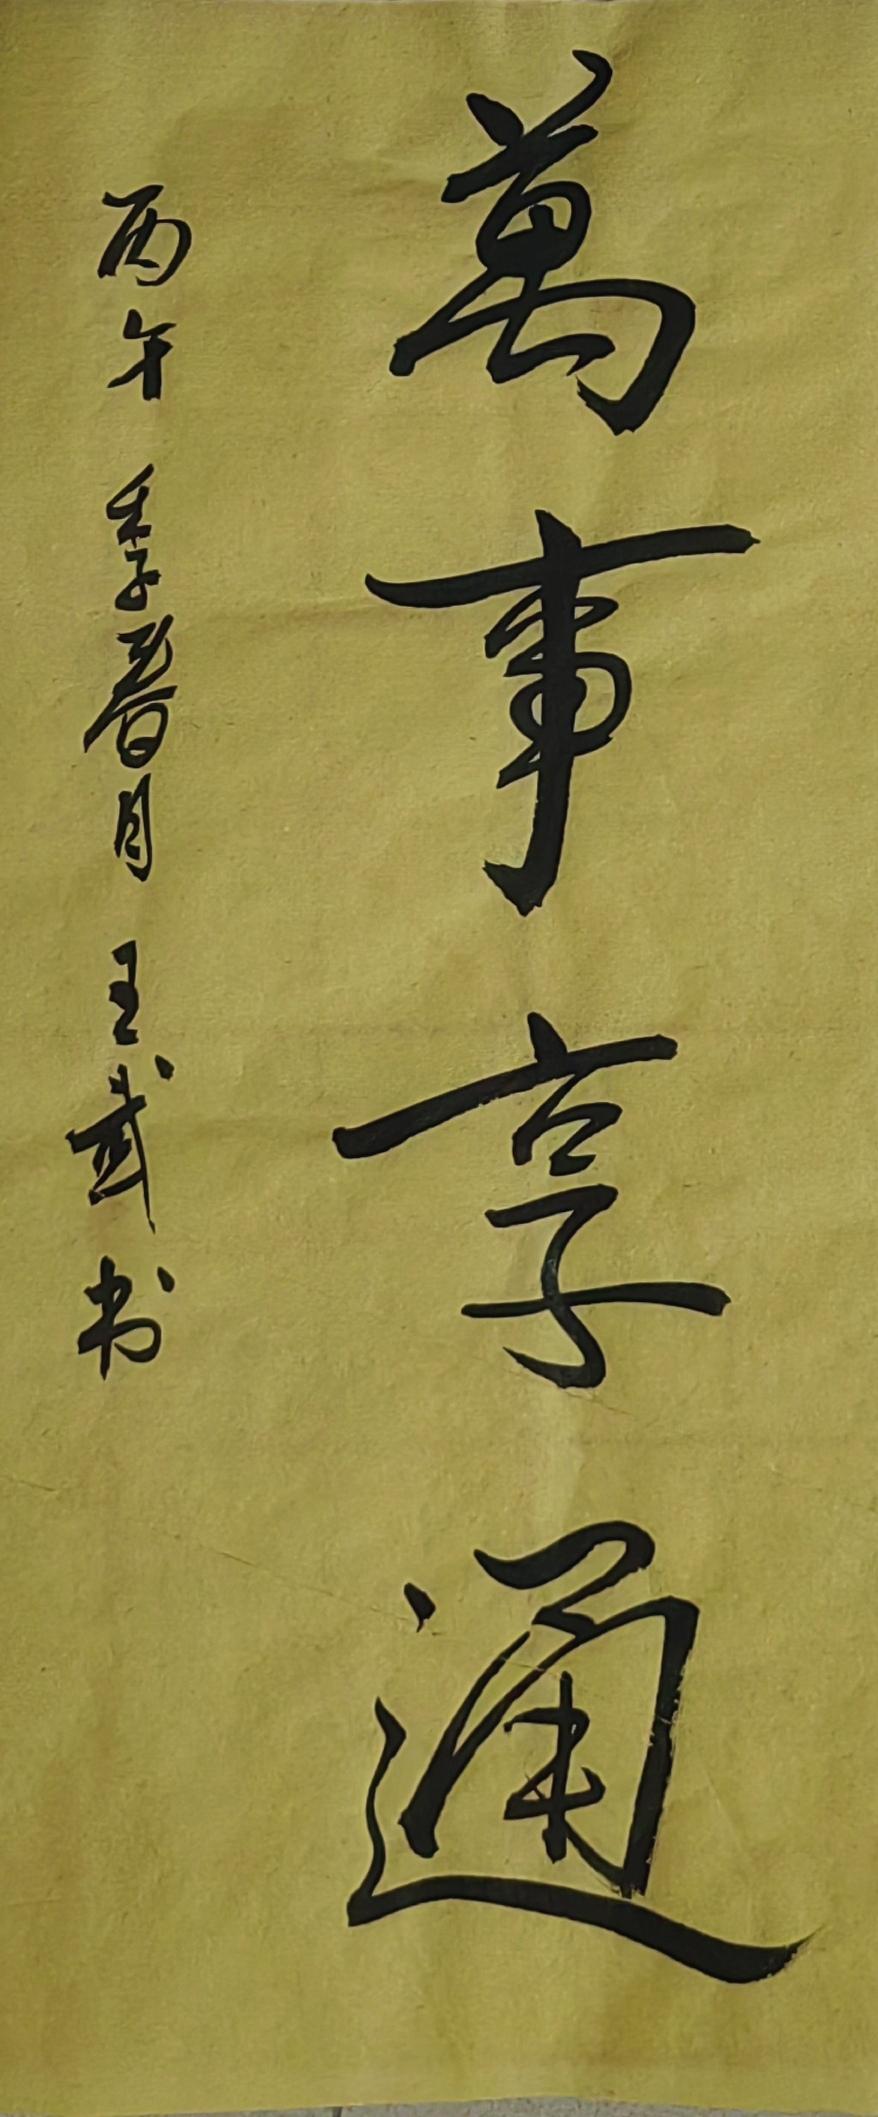 萬事享通
丙午季春月王武书